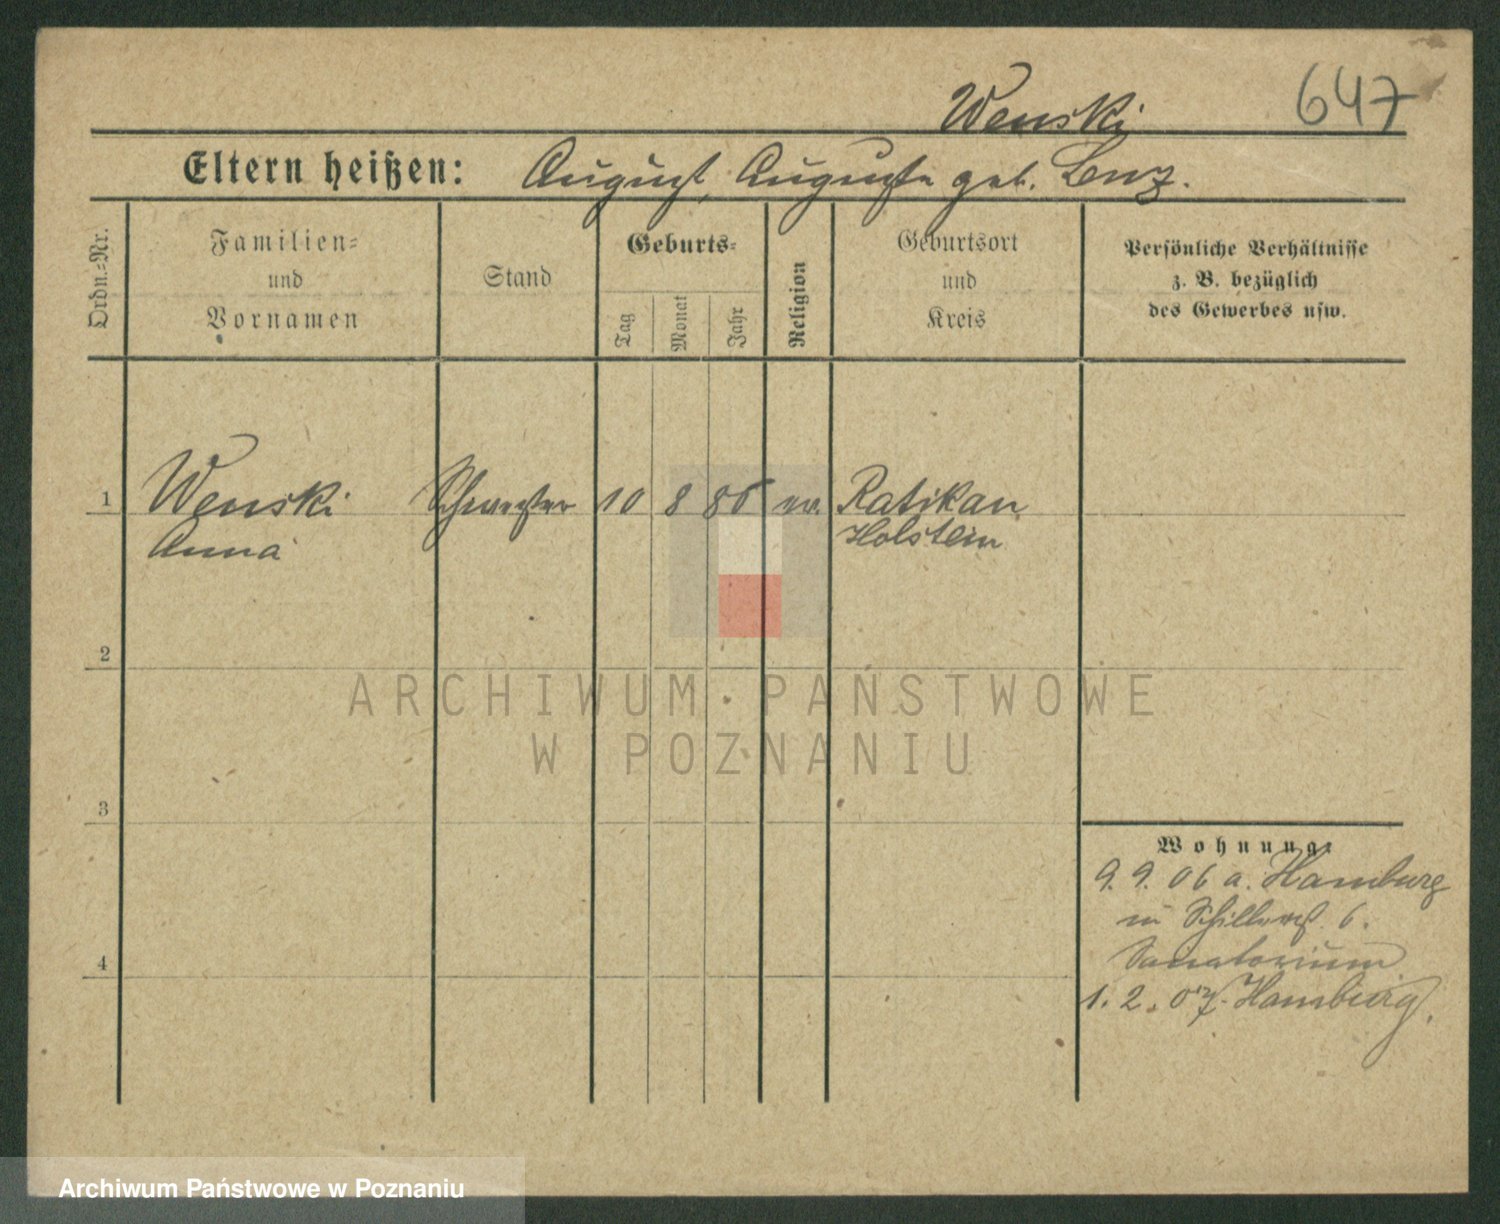 Wenski
647
Eltern heißen: August, Auguste geb. Lenz.
Ordn.-Nr.
Familien-
und
Vornamen
Stand
Geburts-
Tag
Monat
Jahr
Religion
Geburtsort
und
Kreis
Persönliche Verhältnisse
z. B. bezüglich
des Gewerbes usw.
1 Wenski Schwester 10 8 86 ev. Ratikau
Anna Holstein
2
ARCHIWUM PAŃSTWOWE
W POZNANIU
3
Wohnung:
9. 9. 06 a. Hamburg
in Schillerst. 6.
4
Sanatorium
1. 2. 07. Hamburg.
Archiwum Państwowe w Poznaniu